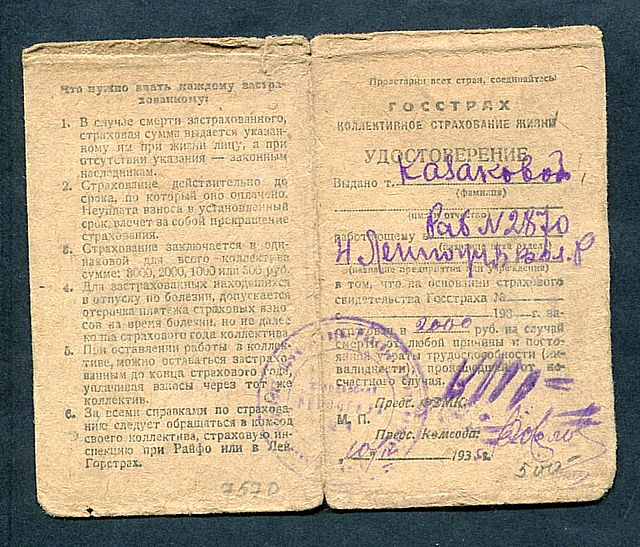 Что нужно знать каждому застра-
хованному:
1. В случае смерти застрахованного,
страховая сумма выдается указан-
ному им при жизни лицу, а при
отсутствии указания — законным
наследникам.
2. Страхование действительно до
срока, по который оно оплачено.
Неуплата взноса в установленный
срок, влечет за собой прекращение
страхования.
3. Страхование заключается в оди-
наковой для всего коллектива
сумме: 3000, 2000, 1000 или 500 руб.
4. Для застрахованных находящихся
в отпуску по болезни, допускается
отсрочка платежа страховых взно-
сов на время болезни, но не далее
конца страхового года коллектива.
5. При оставлении работы в коллек-
тиве, можно оставаться застрахо-
ванным до конца страхового года,
уплачивая взносы через тот же
коллектив.
6. За всеми справками по страхова-
нию следует обращаться в комсод
своего коллектива, страховую ин-
спекцию при Райфо или в Лен.
Госстрах.
7570
Пролетарии всех стран, соединяйтесь!
ГОССТРАХ
КОЛЛЕКТИВНОЕ СТРАХОВАНИЕ ЖИЗНИ
УДОСТОВЕРЕНИЕ
Выдано т. Казаковой
(фамилия)
(имя, отчество)
работающему в Рав N 2870
(название предприятия или учреждения)
в том, что на основании страхового
свидетельства Госстраха №
с 193 г. за-
страхован в 2000 руб. на случай
смерти от любой причины и пос-
тоянной утраты трудоспособности (ин-
валидности), происшедшей от не-
счастного случая.
Пред. ФЗМК
М. П.
Предс. Комсода
10/IV 1935 г.
500